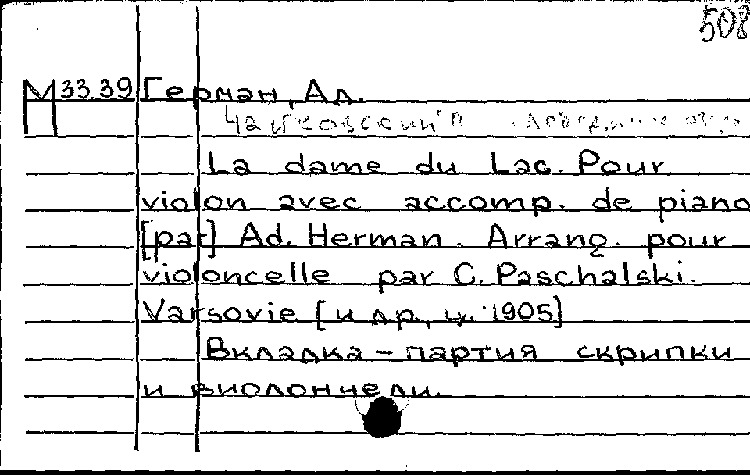 508
М 33.39 Герман, Ад.
Чайковский П
La dame du Lac. Pour
violon avec accomp. de piano
[par] Ad. Herman. Arrang. pour
violoncelle par C. Paschalski.
Varsovie [и др., ц. 1905]
Вкладка – партия скрипки
и виолончели.